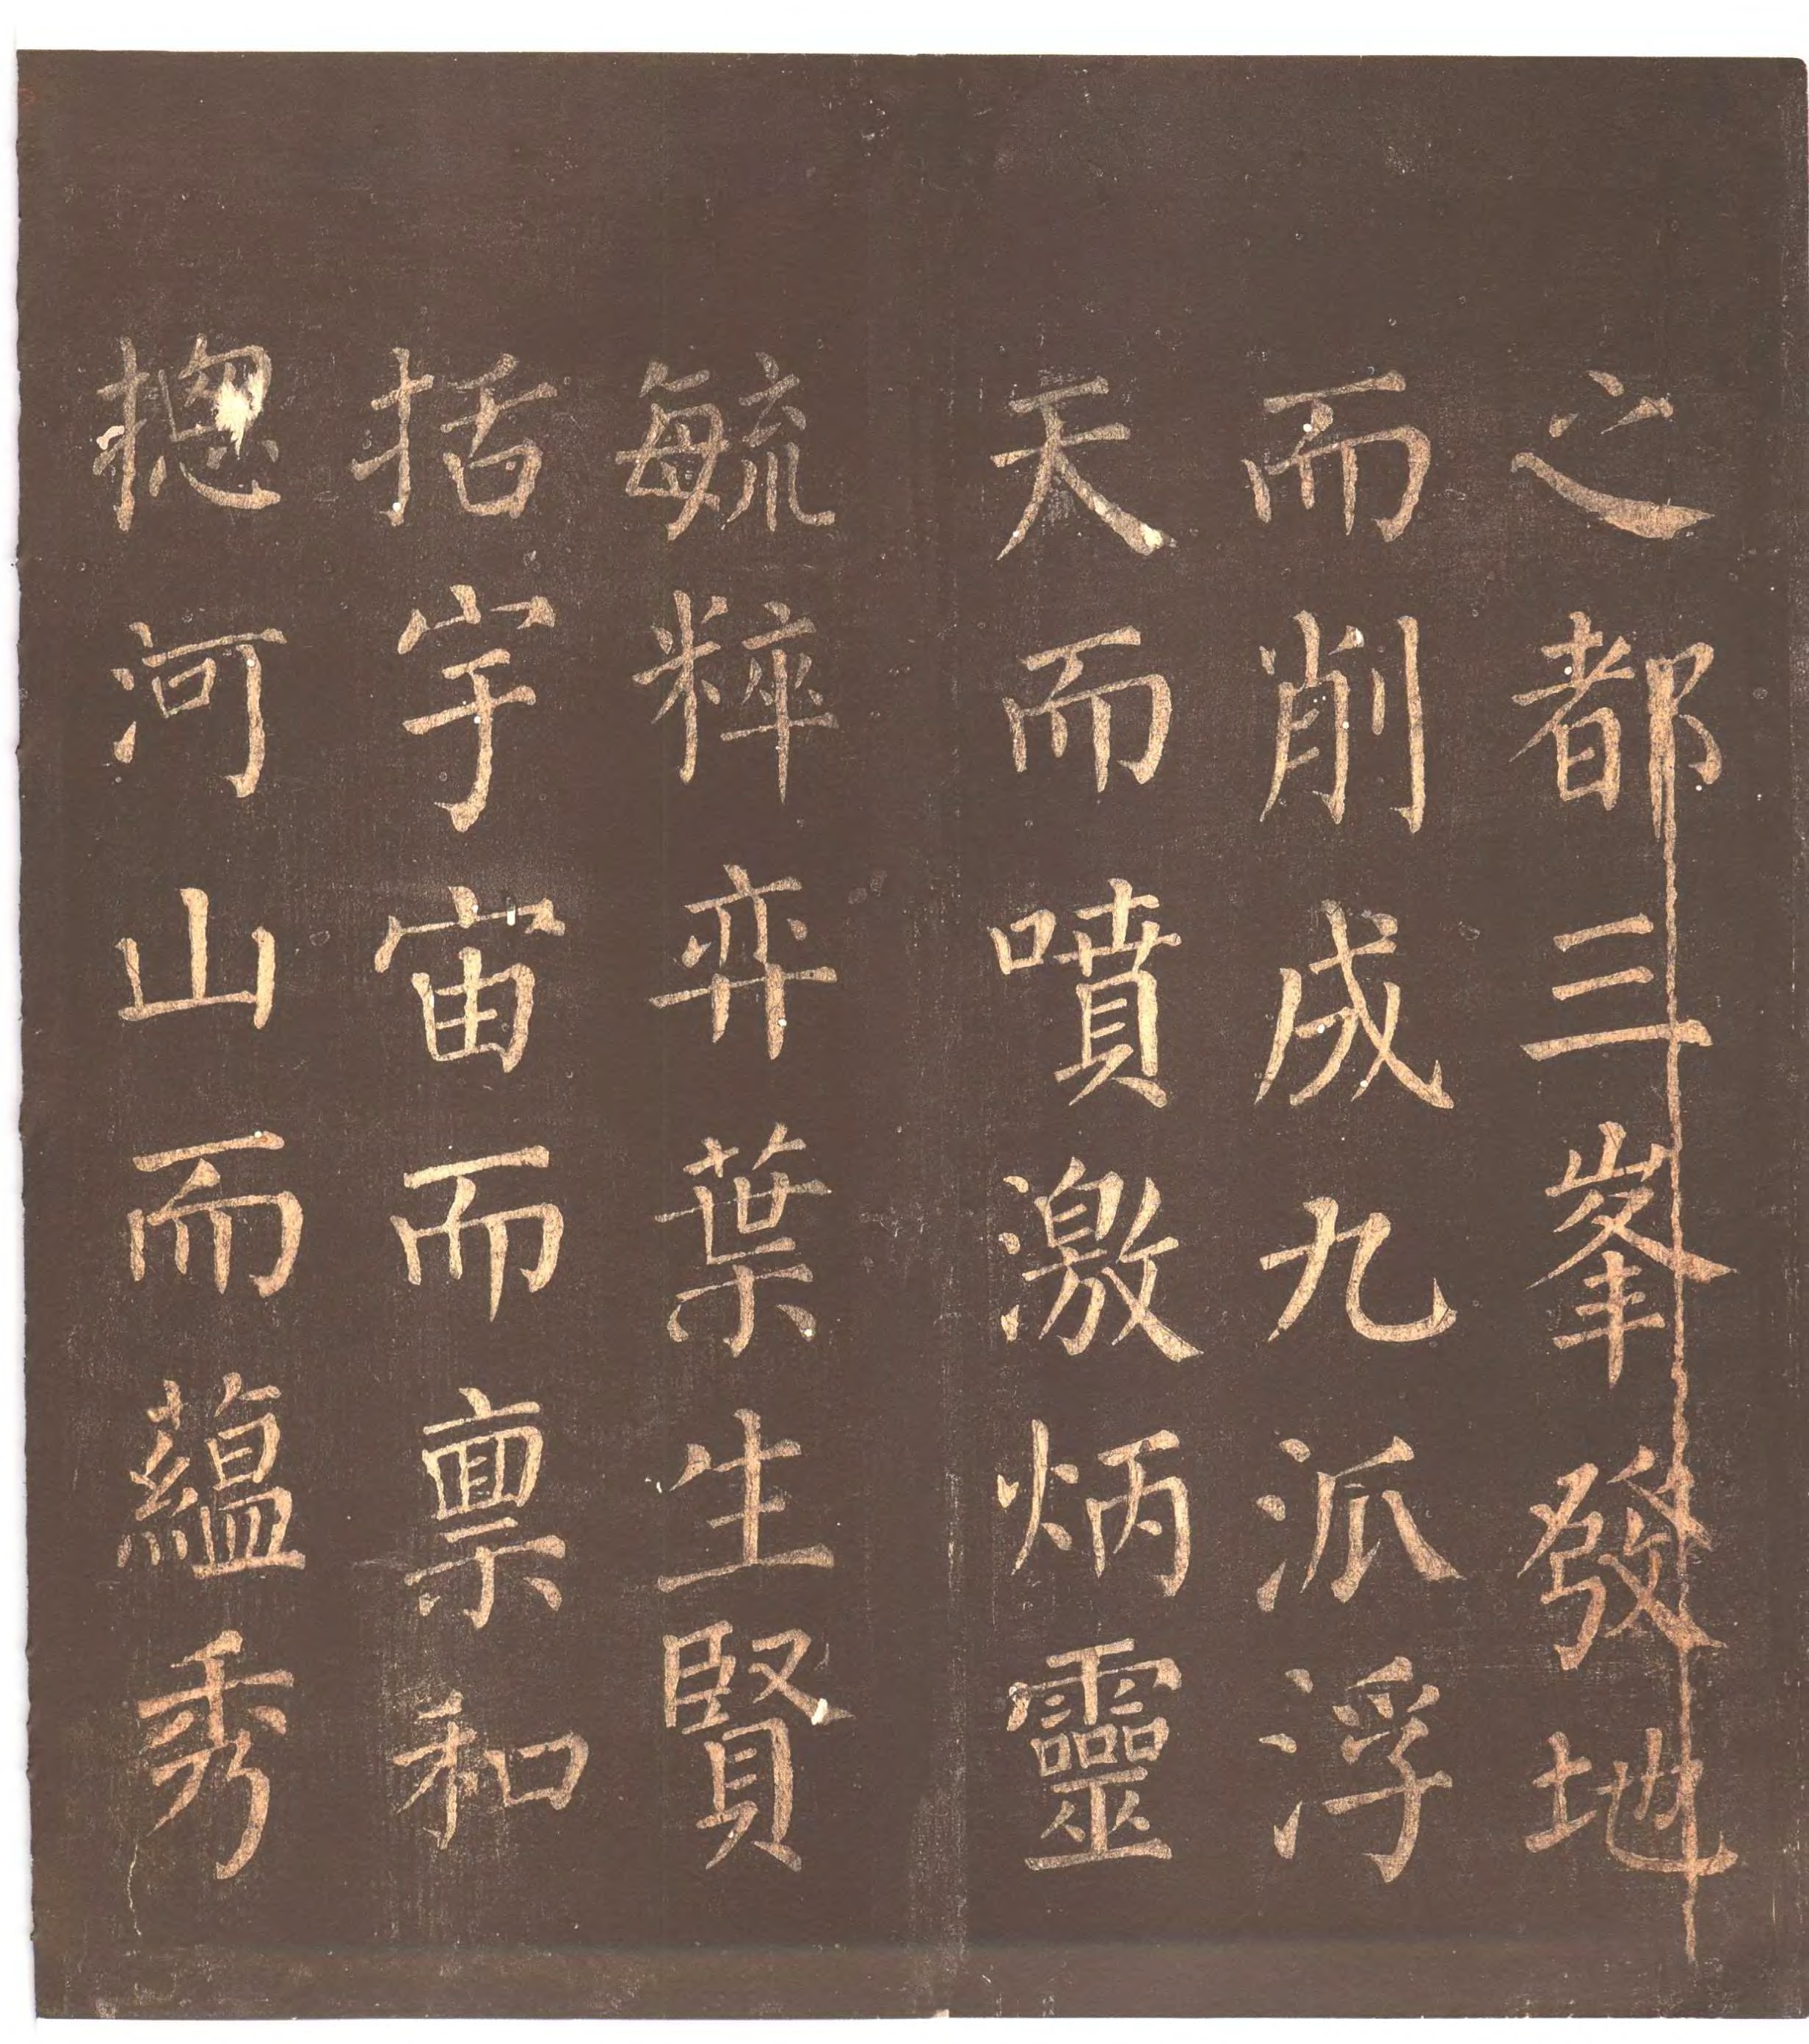 之都三峯發地
而削成九派浮
天而噴激炳靈
毓粹弈葉生賢
括宇宙而禀和
揔河山而蘊秀